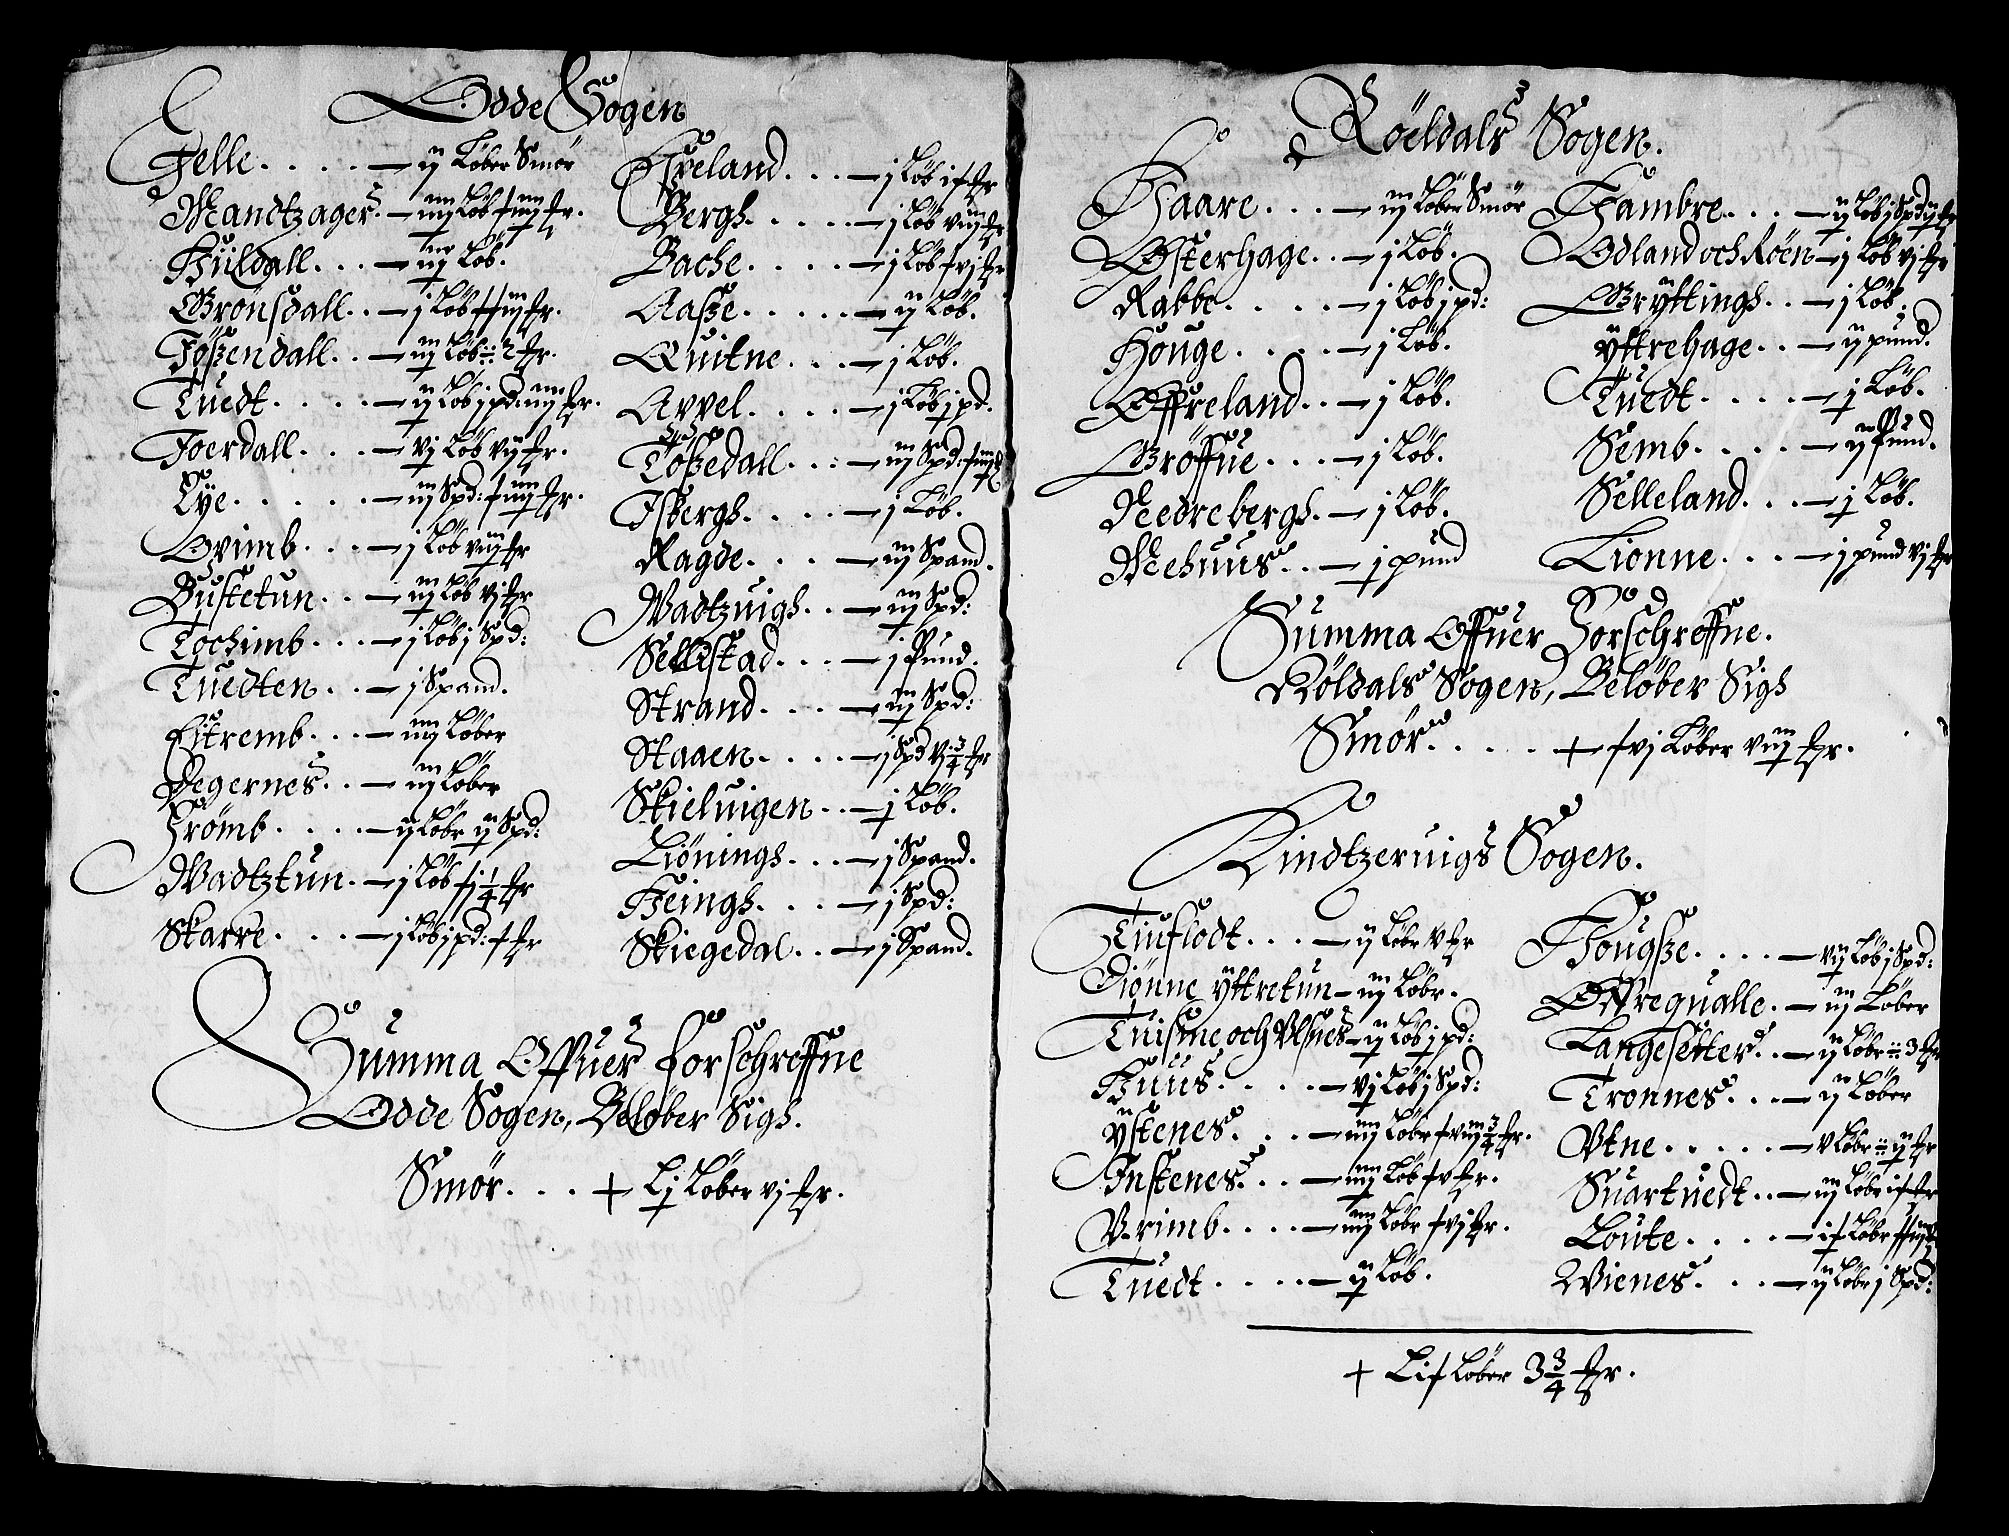 Odde Sogen
Jelle. . . . . — ij Løber Smör
Mandtzager. — iiij Løb ÷ iiij fr.
Hüldall. . . — iij Løb.
Grönsdall. . — j Løb ÷ iij fr.
Jöszendall. . — iij Løb :: 2 fr.
Tuedt. . . . . — ij Løb j pd: iiij fr.
Joerdall. . . — vj Løb vij fr.
Eye. . . . . . — iij Spd: ÷ iiij fr.
Qvimb. . . . — j Løb viij fr
Bustetun. . . — iij Løb vj fr
Tochimb. . . — j Løb j Spd:
Tuedten. . . — j Spand.
Eitremb. . . — iiij Løber
Degernes. . . — iij Løber
Frömb. . . . . — ij Løbr ij Spd:
Wadtztun. — j Løb ÷ j 1/4 fr
Skarre. . . . — j Løb j pd: ÷ fr
Hreland. . . — j Løb i÷ fr
Bergh. . . . . — j Løb viij fr
Bache. . . . . — j Løb ÷ vj fr
Aasze. . . . . — ij Løb.
Quitne. . . . — j Løb.
Appel. . . . . — j Løb j pd.
Töszedall. . : — iij Spd: ÷ iij
Isbergh. . . . — j Løb.
Ragde. . . . — iij Spand.
Wadtzuigh. . — iij Spd:
Sellestad. . . — j Pund.
Strand. . . . — iij Spd:
Staaen. . . . — j Spd vj 3/4 fr
Skieluigen. . — j Løb.
Liönings. . . — j Spand.
Heingh. . . . — j Spd:
Skiegedal. . — j Spand.
Summa Offuer forschreffne
Odde Sogen, Beløber Sigh.
Smör. . . . + Lj Løber vj fr.
Röeldals Sogen.
Haare. . . — iij Løber Smör
Østerhage. . — j Løb.
Rabbe. . . . . — j Løb j pd:
Höuge. . . . . — j Løb.
Øffreland. . — j Løb.
Gröffue. . . — j Løb.
Nedrebergh. — j Løb.
Mehuus. . . — j pund
Hambre. . . . — ij Løb j Spd ij fr
Odland och Röen — j Løb vj fr
Gryttingh. . — j Løb.
ÿttrehage. . . — ij pund.
Tuedt. . . . . — j Løb.
Semb. . . . . — ij Pund.
Selleland. . . — j Løb.
Lionne. . . . — j pund vj fr
Summa Offuer Forschreffne.
Röldals Sogen, Beløber Sigh
Smör. . . . . + ÷vj Løber viij fr.
Kindtzeruigs Sogen.
Tiuflödt. . . — ij Løbr v fr
Diönne ÿttretun — iij Løbr.
Tuisme och Vlsnes — ij Løb j pd:
Huus. . . . . — vj Løb j Spd:
ÿstenes. . . . — iiij Løbr ÷ viij 3/4 fr.
Instenes. . . — iiij Løb ÷v fr.
Vrimb. . . . . — iiij Løbr ÷vj fr.
Tuedt. . . . . — ij Løb.
Hougsze. . . . — vij Løb j Spd:
Offrequalle. — iij Løber
Langesetter. . — ij Løbr :: 3 fr
Tronnes. . . . — ij Løber
Vtne. . . . . — v Løbr :: ij fr
Suartuedt. . — iij Løbr i÷ fr
Loute. . . . . — i÷ Løbr
Wienes. . . . — ij Løbr j Spd:
+ Li÷ Løber 3 3/4 fr.